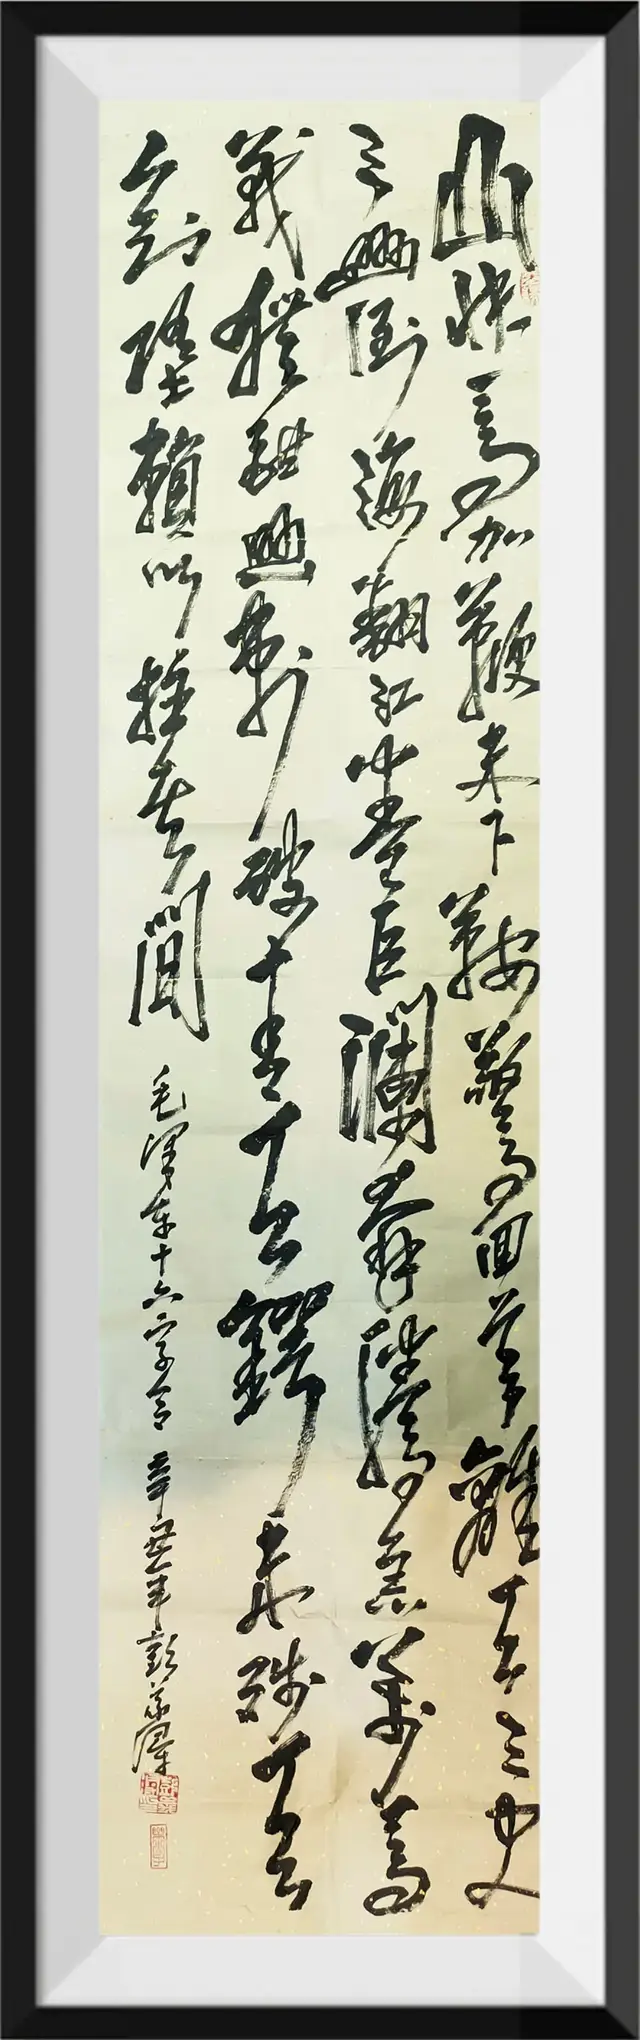 山快馬加鞭未下鞍驚回首離天三尺
三山倒海翻江卷巨瀾奔騰急萬馬
戰猶酣山刺破青天鍔未殘天
欲墮賴以拄其間 毛澤東十六字令 辛丑年彭